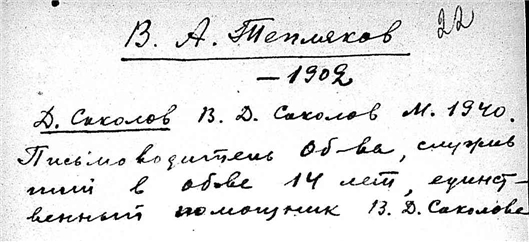 22
В. А. Тепляков
– 1902
Д. Соколов В. Д. Соколов М. 1940.
Письмоводитель Об-ва, служив
ший в об-ве 14 лет, единст-
венный помощник В. Д. Соколова